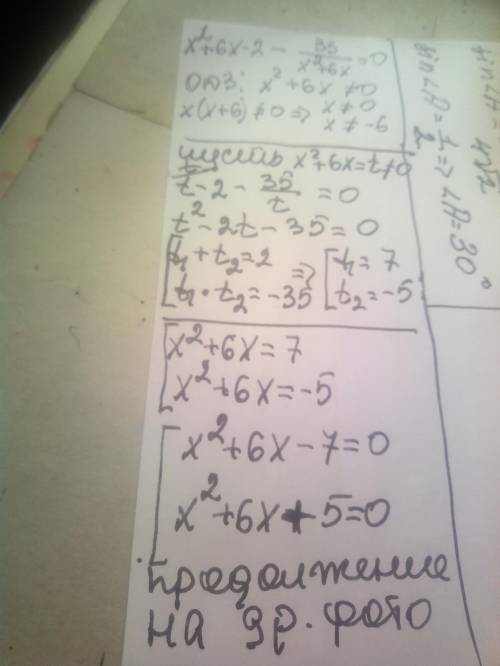 x²+6x-2 - 35/(x²+6x) =0
ОДЗ: x²+6x≠0
x(x+6)≠0 => x≠0
x≠-6
пусть x²+6x=t≠0
t-2- 35/t =0
t²-2t-35=0
[t₁+t₂=2 => [t₁=7
[t₁·t₂=-35 [t₂=-5
[x²+6x=7
[x²+6x=-5
[x²+6x-7=0
[x²+6x+5=0
продолжение
на др. фото
sin∠A=1/2=>∠A=30°